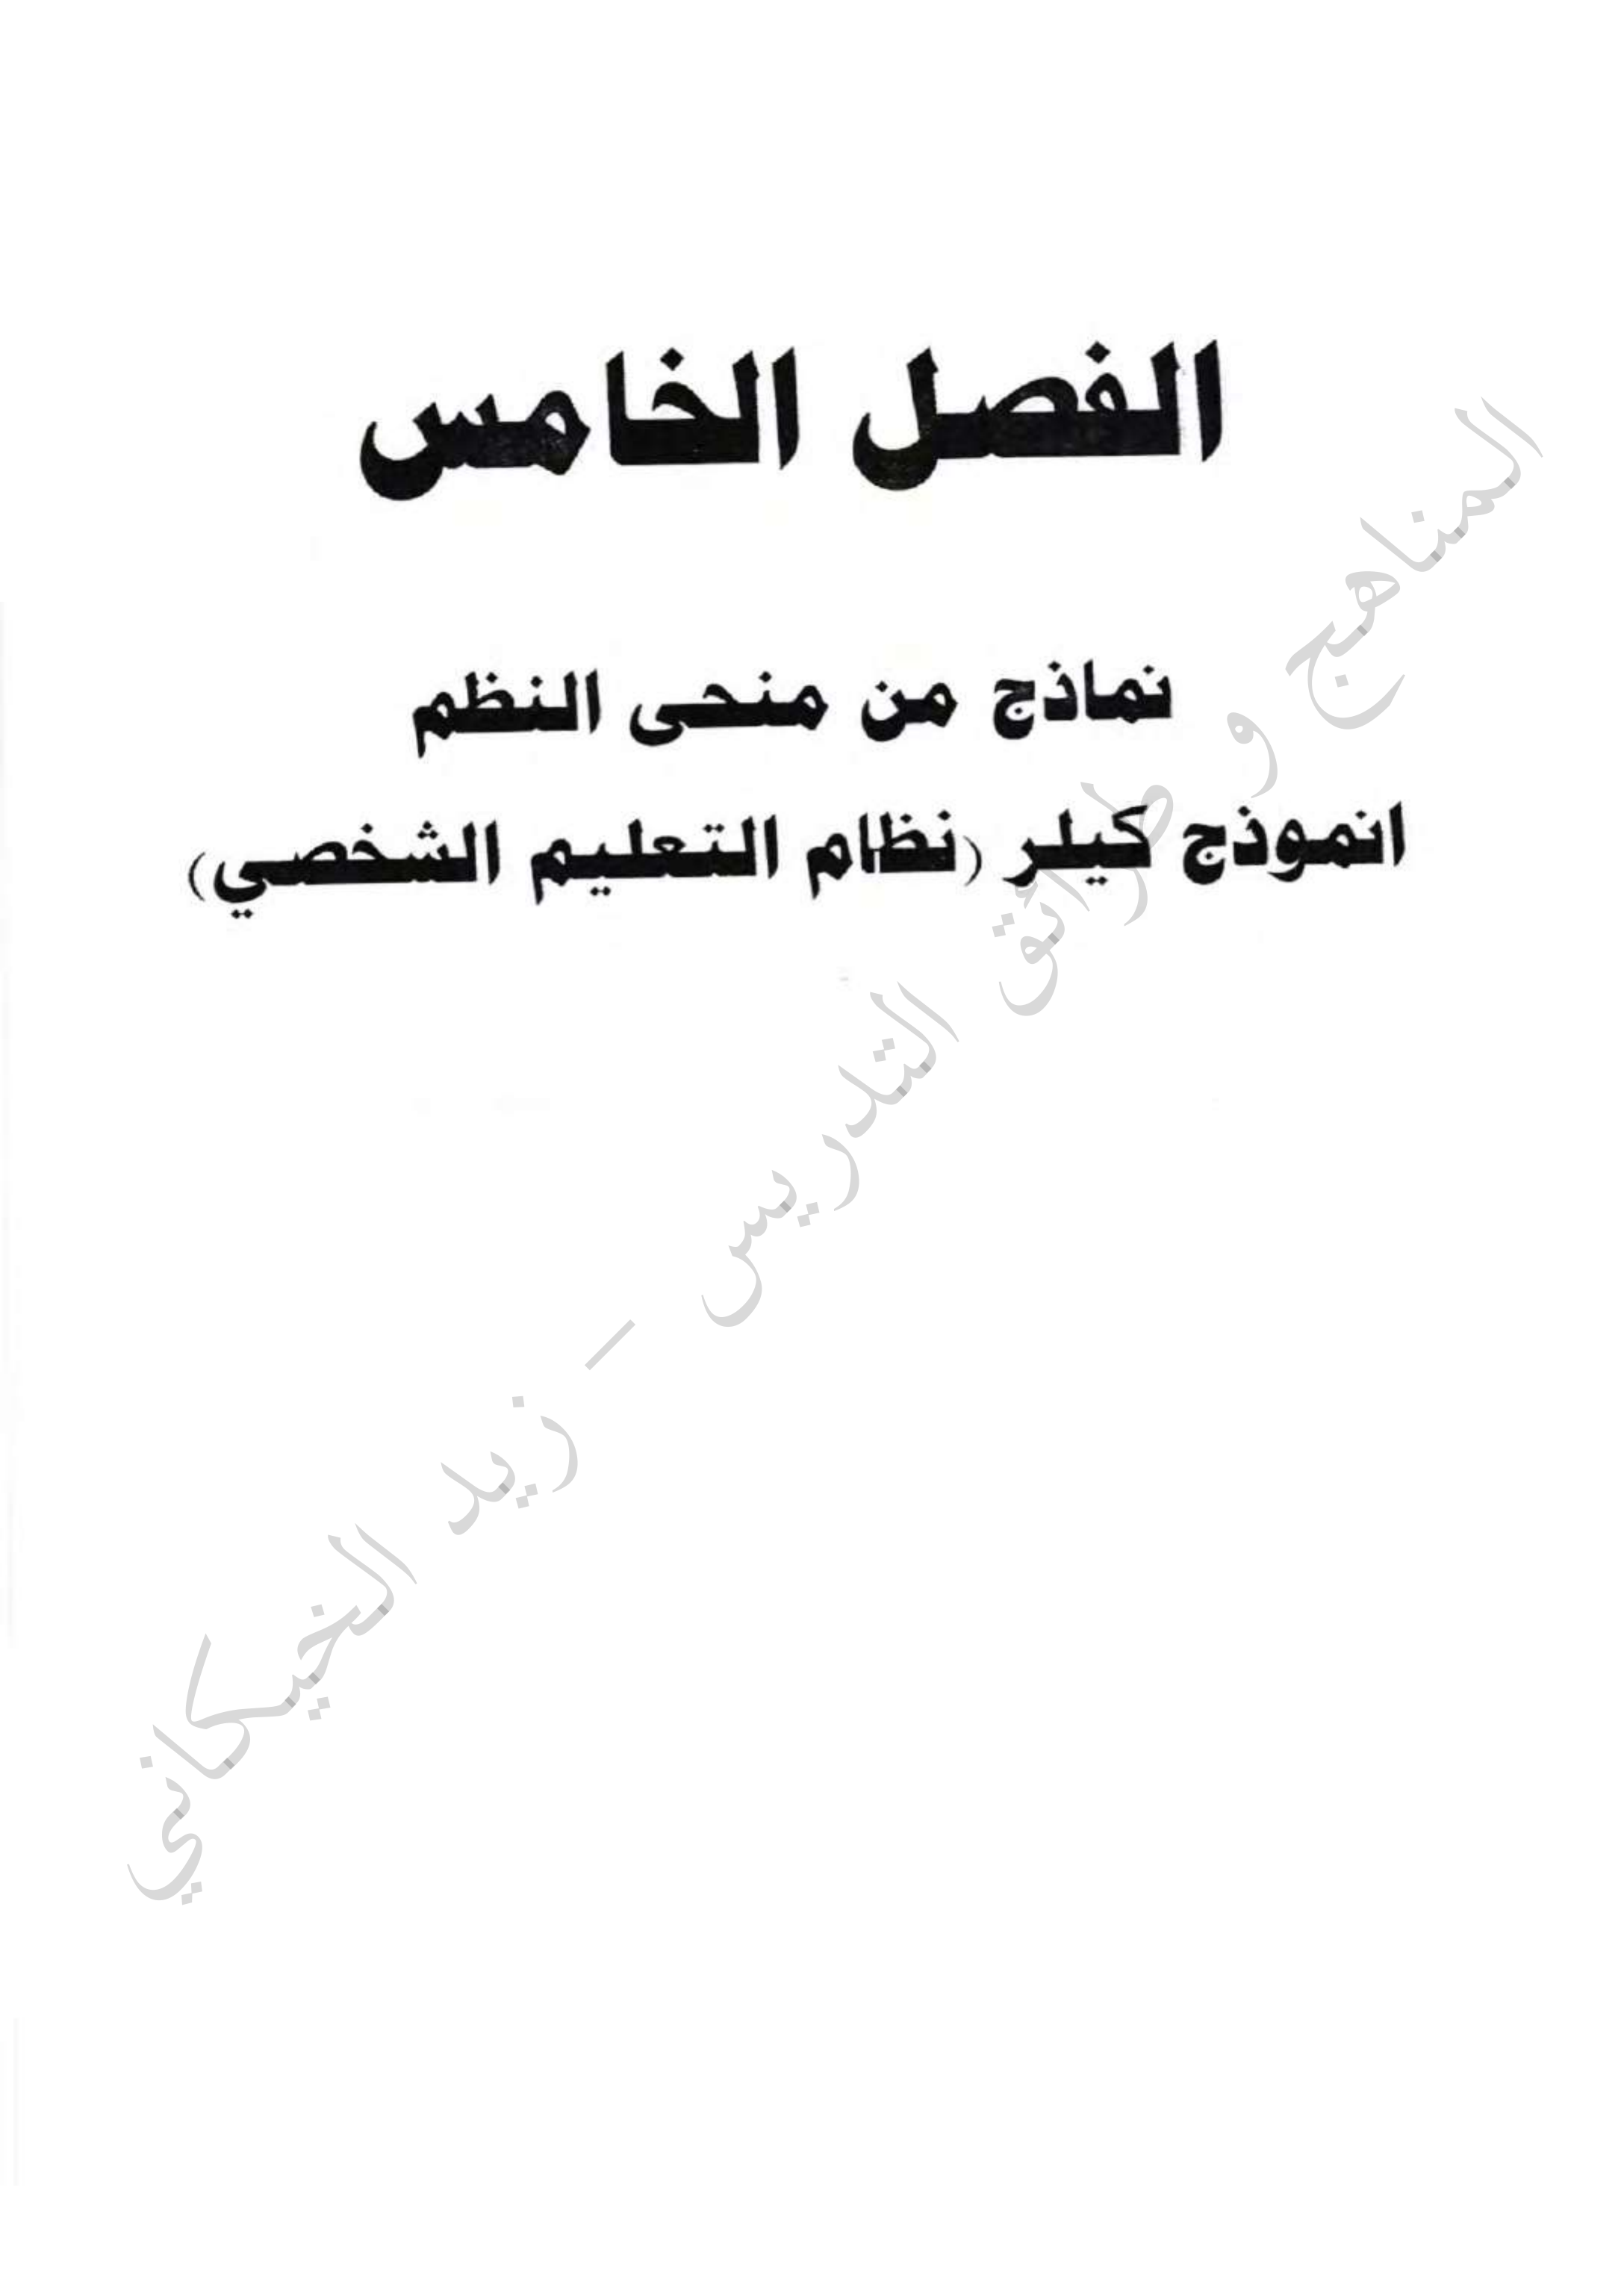 الفصل الخامس
نماذج من منحى النظم
انموذج كيلر (نظام التعليم الشخصي)
المناهج و طرائق التدريس – زيد الخيكاني